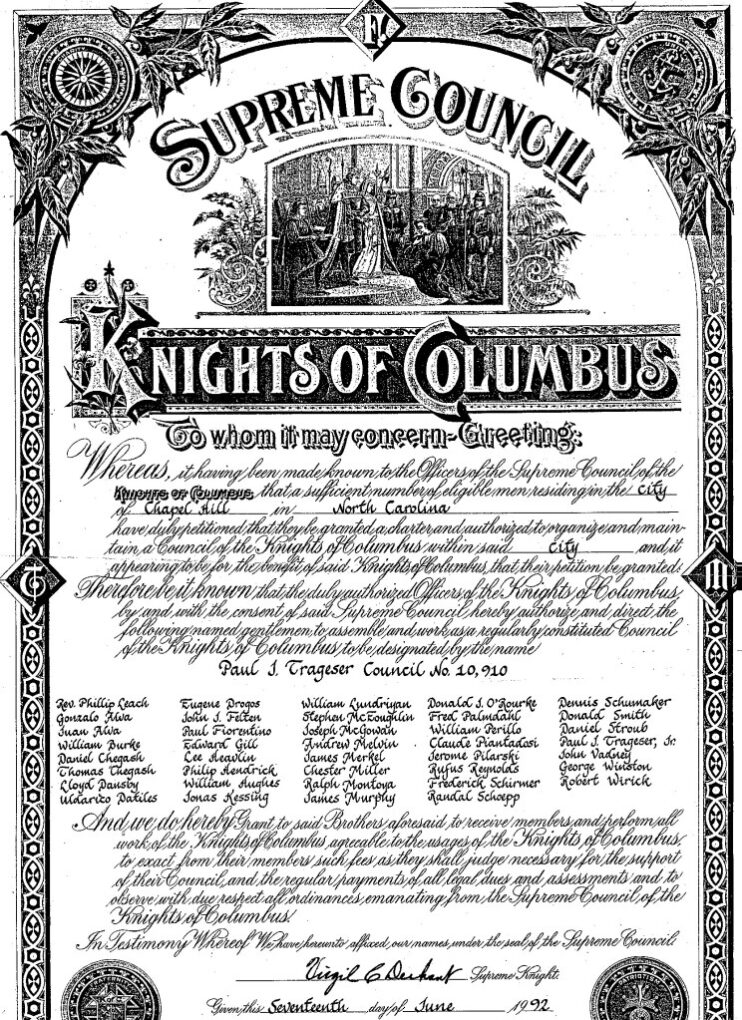 F.
SUPREME COUNCIL
KNIGHTS OF COLUMBUS
To whom it may concern-Greeting:
Whereas, it having been made known to the Officers of the Supreme Council of the
KNIGHTS OF COLUMBUS that a sufficient number of eligible men residing in the City
of Chapel Hill in North Carolina
have duly petitioned that they be granted a charter and authorized to organize and main-
tain a Council of the Knights of Columbus within said City and it
appearing to be for the benefit of said Knights of Columbus, that their petition be granted:
Therefore be it known that the duly authorized Officers of the Knights of Columbus,
by and with the consent of said Supreme Council hereby authorize and direct the
following named gentlemen to assemble and work as a regularly constituted Council
of the Knights of Columbus, to be designated by the name
Paul J. Trageser Council No. 10,910
Rev. Phillip Leach Eugene Drogos William Lundriyan Donald J. O'Rourke Dennis Schumaker
Gonzalo Alva John J. Felten Stephen McLoughlin Fred Palmdahl Donald Smith
Juan Alva Paul Fiorentino Joseph McGowan William Perillo Daniel Stroub
William Burke Edward Gill Andrew Melvin Claude Piantadosi Paul J. Trageser, Jr.
Daniel Chegash Lee Heavlin James Merkel Jerome Pilarski John Vadney
Thomas Chegash Philip Hendrick Chester Miller Rufus Reynolds George Winston
Lloyd Dansby William Hughes Ralph Montoya Frederick Schirmer Robert Wirick
Uldarico Datiles Jonas Kessing James Murphy Randal Schoepp
And we do hereby Grant to said Brothers aforesaid, to receive members and perform all
work of the Knights of Columbus agreeable to the usages of the Knights of Columbus:
to exact from their members such fees as they shall judge necessary for the support
of their Council, and the regular payments of all legal dues and assessments and to
observe with due respect all ordinances emanating from the Supreme Council of the
Knights of Columbus.
In Testimony Whereof We have hereunto affixed our names under the seal of the Supreme Council:
Virgil C Dechant Supreme Knight.
Given this Seventeenth day of June 1992